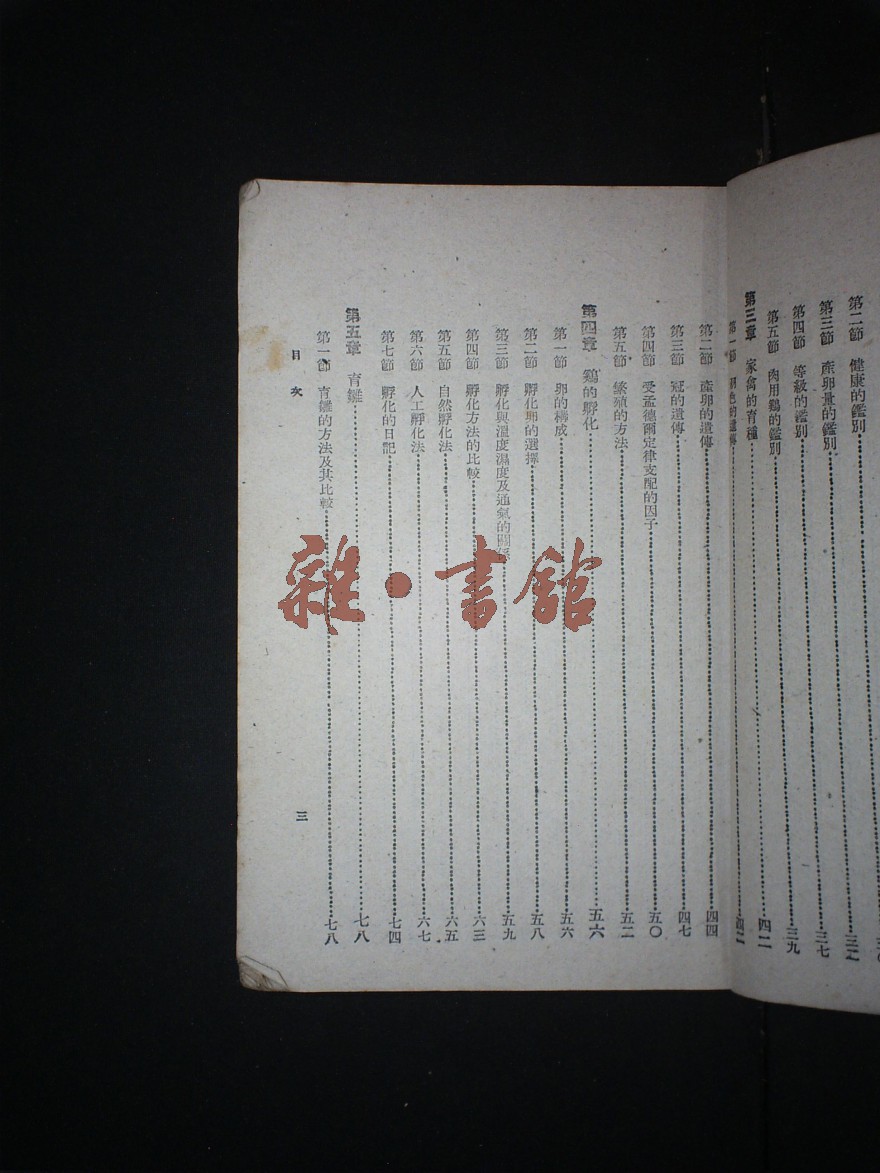 第二節 健康的鑑別
第三節 產卵量的鑑別 三七
第四節 等級的鑑別 三九
第五節 肉用鷄的鑑別 四二
第三章 家禽的育種 四二
第一節 色的遺傳
第二節 產卵的遺傳 四四
第三節 冠的遺傳 四七
第四節 受孟德爾定律支配的因子 五〇
第五節 繁殖的方法 五二
第四章 鷄的孵化 五六
第一節 卵的構成 五六
第二節 孵化卵的選擇 五八
第三節 孵化與溫度濕度及通氣的關係 五九
第四節 孵化方法的比較 六三
第五節 自然孵化法 六五
第六節 人工孵化法 六七
第七節 孵化的日記 七四
第五章 育雛 七八
第一節 育雛的方法及其比較 七八
目次
三
雜·書館